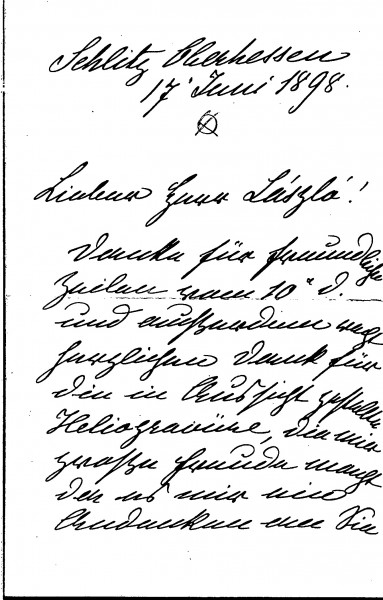 Schlitz Oberhessen
17' Juni 1898.
Lieber Herr László!
Danke für freundliche
Zeilen vom 10ⁿ d.
und außerdem recht
herzlichen Dank für
die in Aussicht gestellte
Heliogravüre, die mir
große Freude macht
da es mir ein
Andenken an Sie